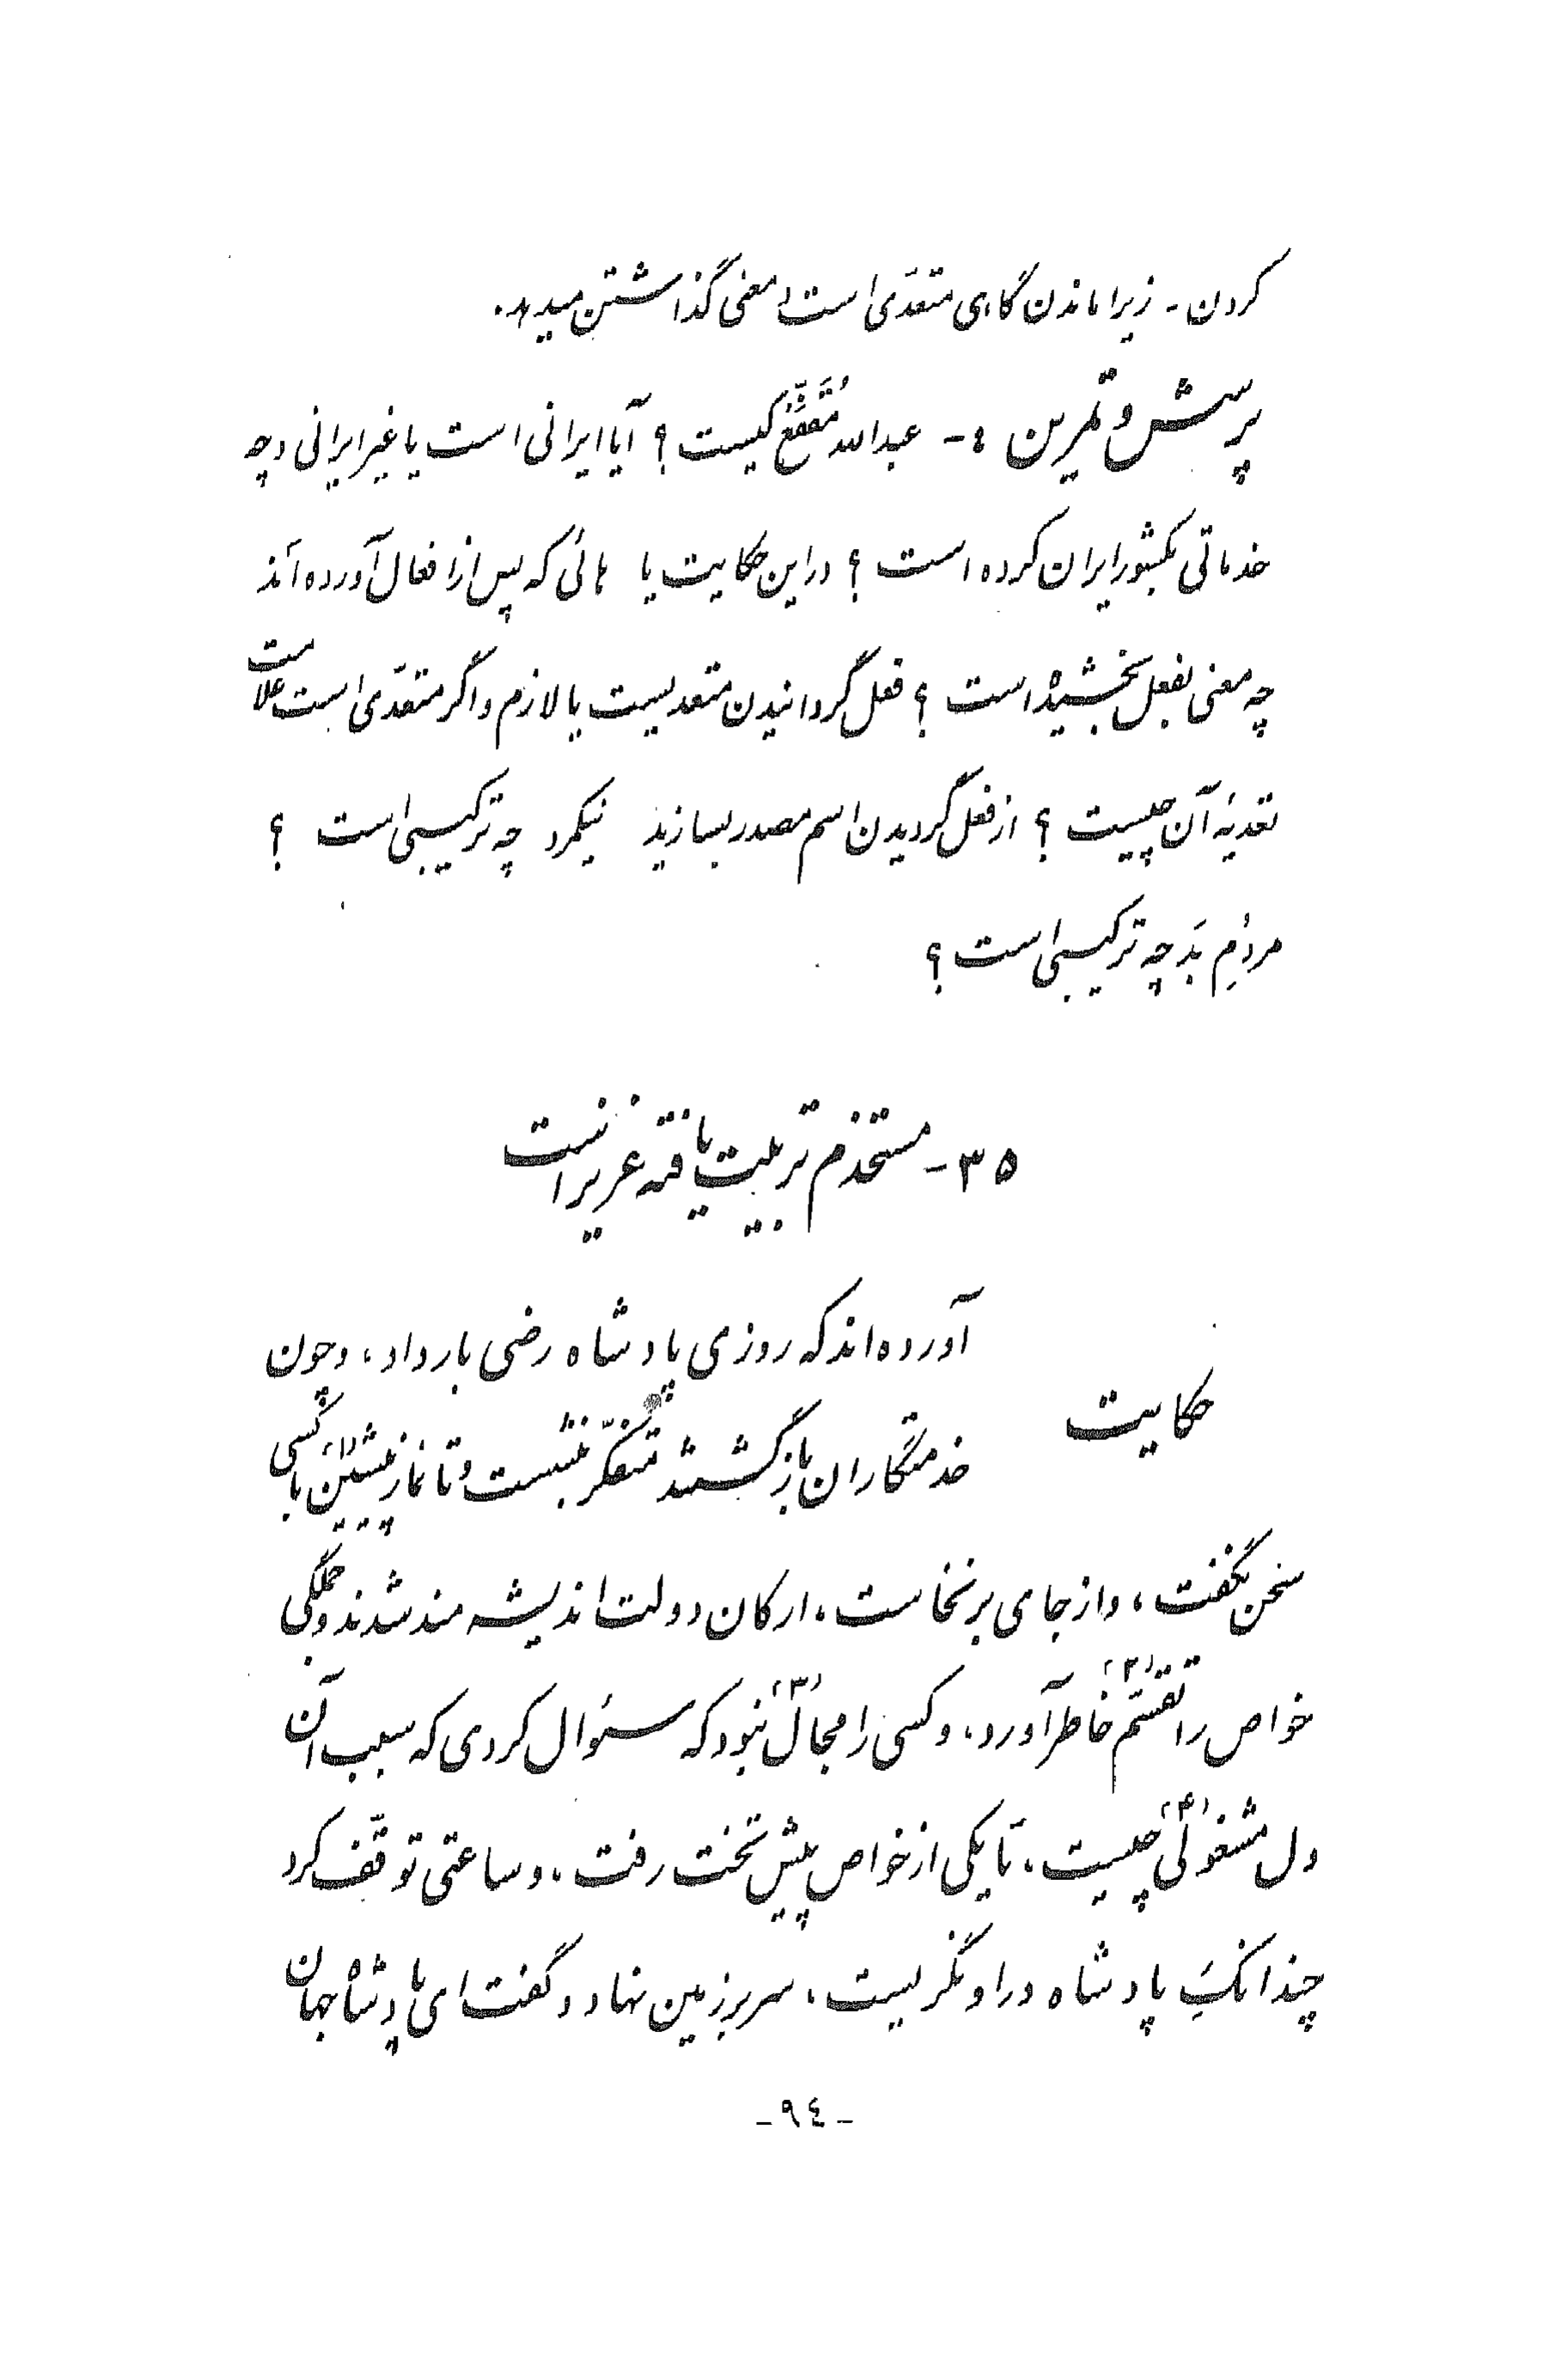 کردن - زیرا ماندن گاهی متعدّی است و معنی گذاشتن میدهد.
پرسش و تمرین ٤ - عبدالله مُقَفَّع کیست ؟ آیا ایرانی است یا غیر ایرانی و چه
خدماتی بکشور ایران کرده است ؟ در این حکایت یا هائی که پس از افعال آورده‌اند
چه معنی بفعل بخشیده است ؟ فعل گردانیدن متعدیست یا لازم و اگر متعدّی است علامت
تعدیهٔ آن چیست ؟ از فعل گردیدن اسم مصدر بسازید نیکمرد چه ترکیبی است ؟
مردُمِ بَد چه ترکیبی است ؟
۳۵ - مستخدم تربیت یافته عزیز است
آورده‌اند که روزی پادشاه رضی بار داد ، و چون
حکایت
خدمتگاران بازگشتند متفکّر بنشست و تا نماز پیشین (۱) با کسی
سخن نگفت ، و از جای برنخاست ، ارکان دولت اندیشه‌مند شدند و جملگی
خواص را تقسّم (۲) خاطر آورد ، و کسی را مجال (۳) نبود که سئوال کردی که سبب آن
دل مشغولی (۴) چیست ، تا یکی از خواص پیش تخت رفت ، و ساعتی توقّف کرد
چندانک پادشاه در او نگریست ، سر بر زمین نهاد و گفت ای پادشاه جهان
- ٩٤ -